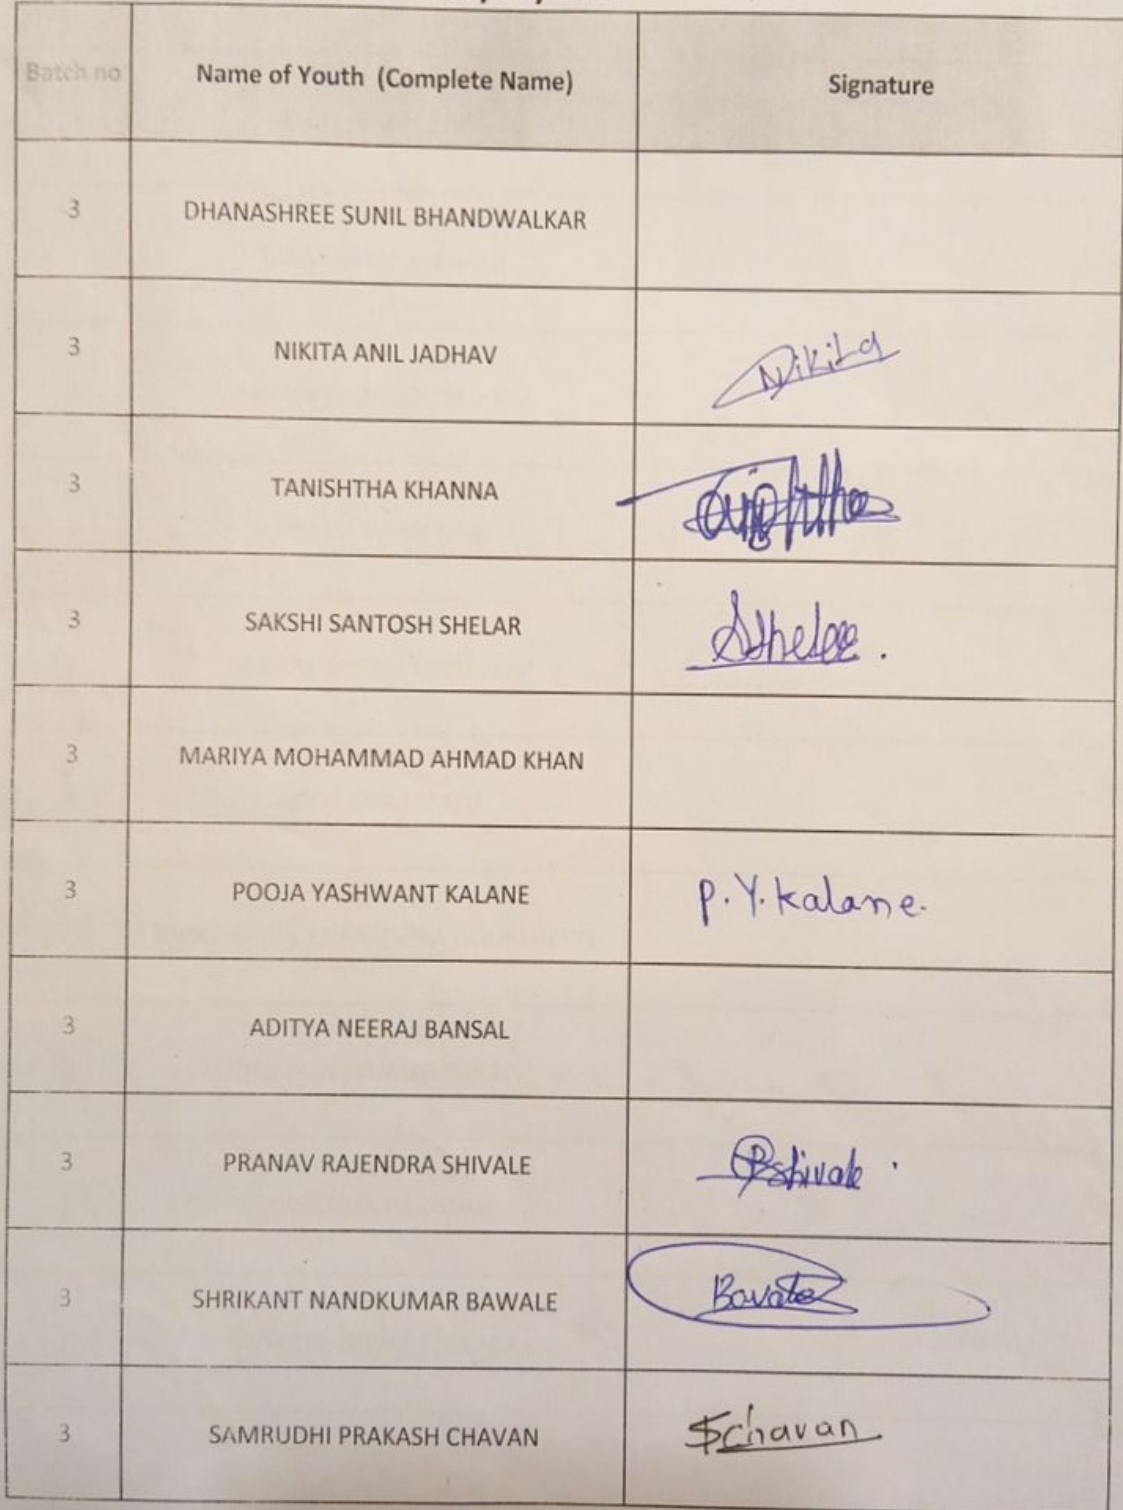 Batch no Name of Youth (Complete Name) Signature
3 DHANASHREE SUNIL BHANDWALKAR
3 NIKITA ANIL JADHAV Nikita
3 TANISHTHA KHANNA Tanishtha
3 SAKSHI SANTOSH SHELAR
3 MARIYA MOHAMMAD AHMAD KHAN
3 POOJA YASHWANT KALANE P.Y.kalane.
3 ADITYA NEERAJ BANSAL
3 PRANAV RAJENDRA SHIVALE PShivale
3 SHRIKANT NANDKUMAR BAWALE
3 SAMRUDHI PRAKASH CHAVAN Schavan